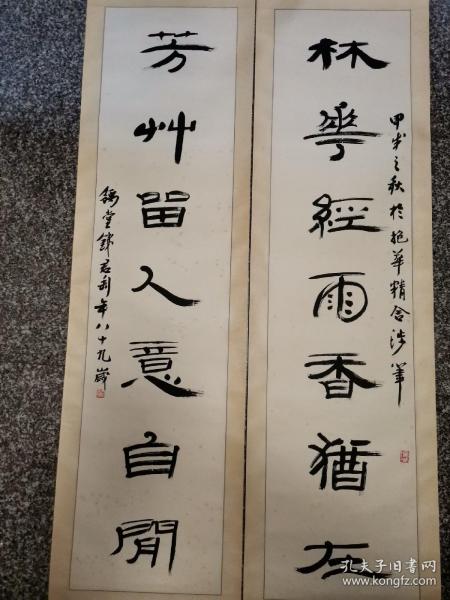 林華經雨香猶在
甲戌之秋於抱華精舍涉筆
芳艸留人意自閒
錢君匋年八十九歲
孔夫子旧书网
www.kongfz.com